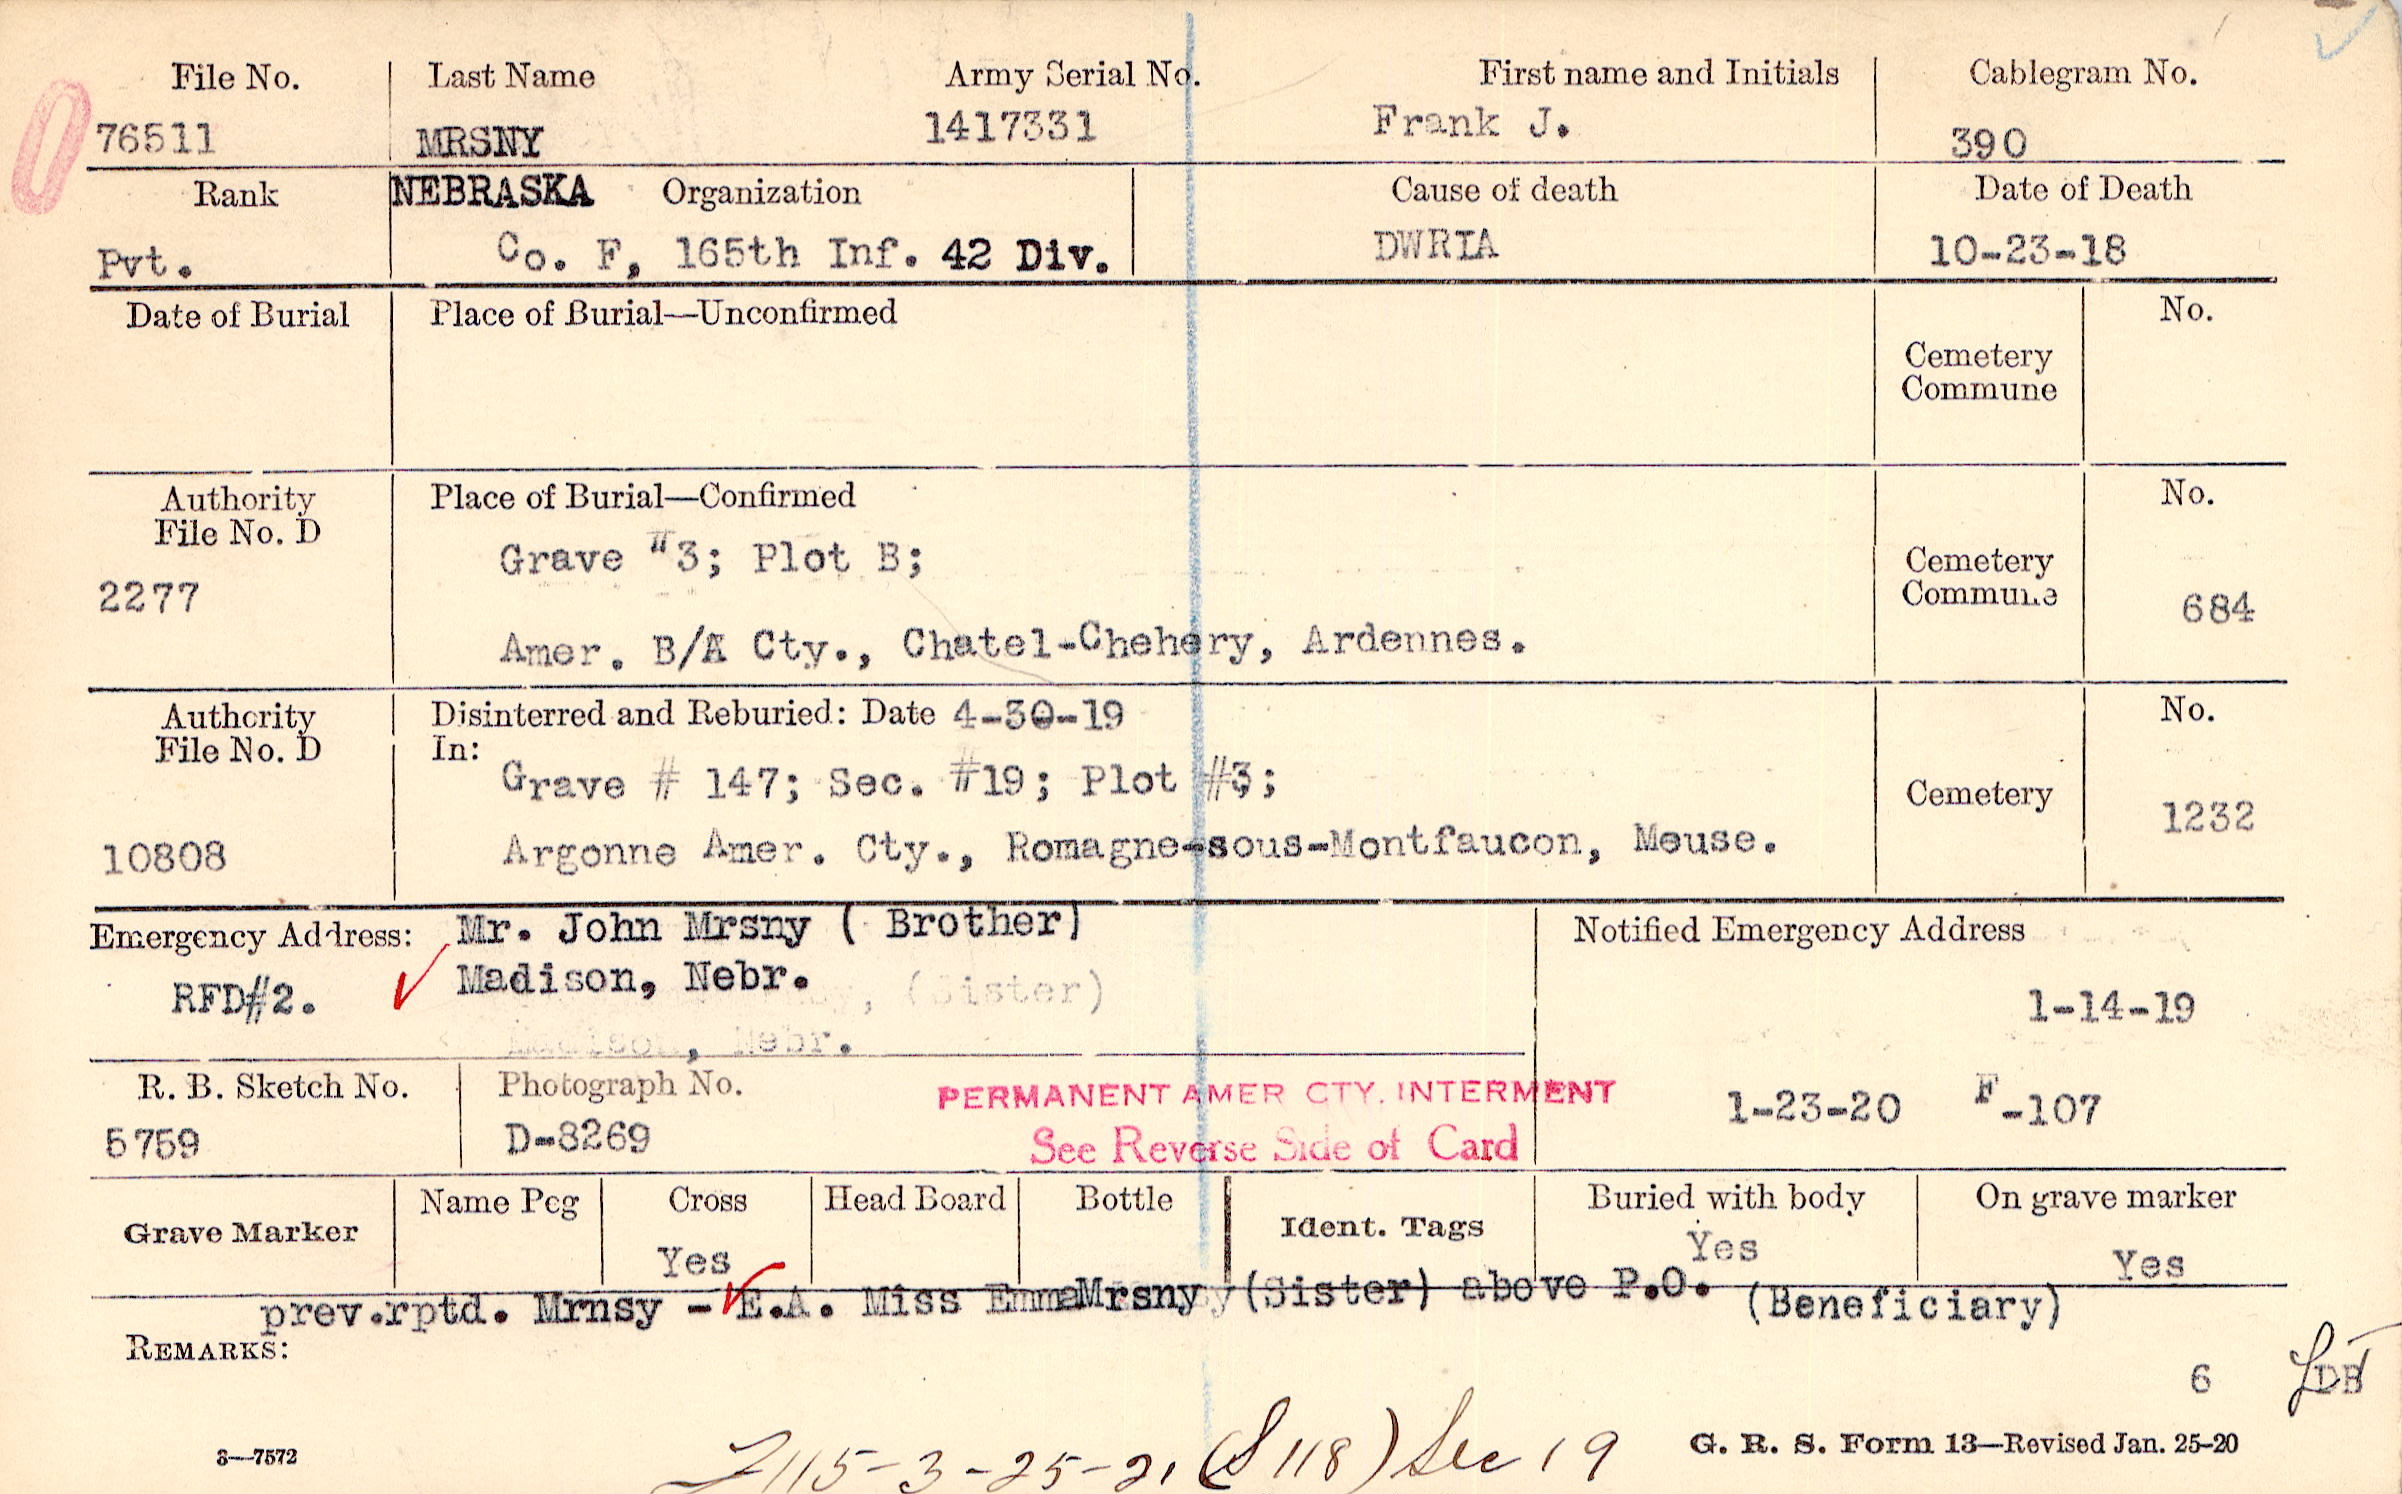 File No. Last Name Army Serial No. First name and Initials Cablegram No.
76511 MRSNY 1417331 Frank J. 390
Rank NEBRASKA Organization Cause of death Date of Death
Pvt. Co. F, 165th Inf. 42 Div. DWRIA 10-23-18
Date of Burial Place of Burial—Unconfirmed No.
Cemetery
Commune
Authority Place of Burial—Confirmed No.
File No. D
Grave #3; Plot B; Cemetery
2277 Commune 684
Amer. B/A Cty., Chatel-Chehery, Ardennes.
Authority Disinterred and Reburied: Date 4-30-19 No.
File No. D In:
Grave # 147; Sec. #19; Plot #3; Cemetery
1232
10808 Argonne Amer. Cty., Romagne-sous-Montfaucon, Meuse.
Emergency Address: Mr. John Mrsny ( Brother) Notified Emergency Address
RFD#2. Madison, Nebr. (Sister) 1-14-19
Madison, Nebr.
R. B. Sketch No. Photograph No. PERMANENT AMER CTY. INTERMENT 1-23-20 F-107
5759 D-8269 See Reverse Side of Card
Grave Marker Name Peg Cross Head Board Bottle Ident. Tags Buried with body On grave marker
Yes Yes Yes
prev.rptd. Mrnsy - E.A. Miss Emma Mrsny (Sister) above P.O. (Beneficiary)
REMARKS:
6
115-3-25-21 (S 118) Sec 19
3—7572 G. R. S. Form 13—Revised Jan. 25-20